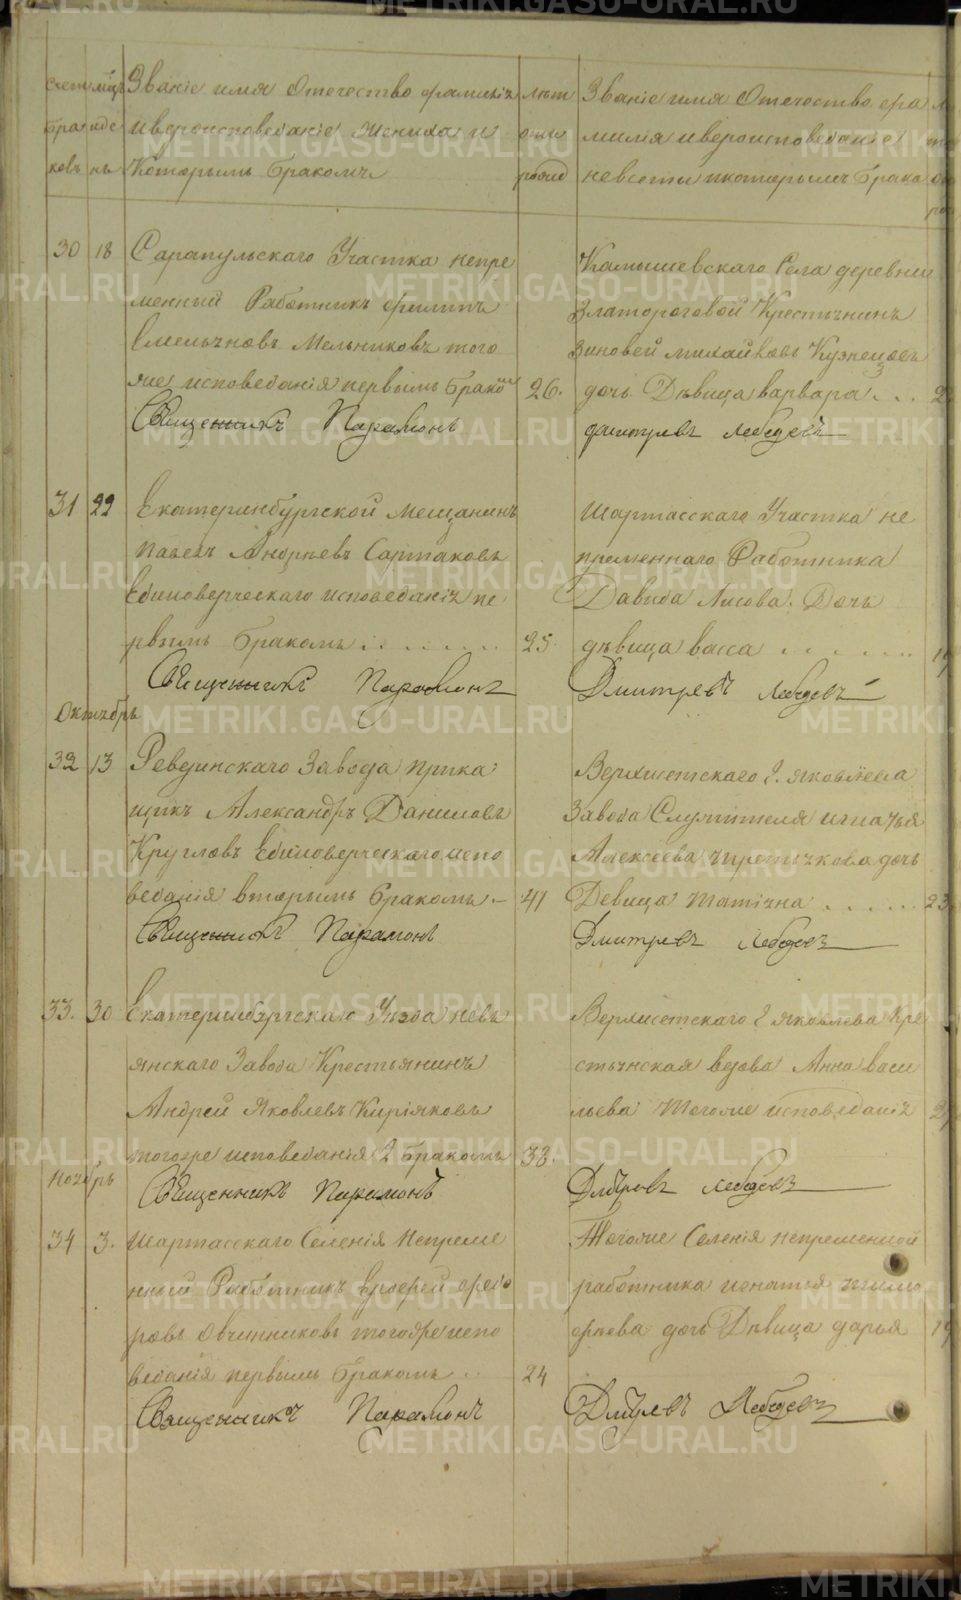 Счетъ браковъ
мѣц. и день
Званіе имя Отечество фамилія
и вероисповеданіе жениха и
Которымъ бракомъ
лѣт
рожд
Званіе имя Отечество фа
милія и вероисповеданіе
невесты и которымъ брако
30 18 Сарапульскаго Участка непре
менный Работникъ Филипъ
Емельяновъ Мельниковъ того
же исповеданія первымъ брако
26.
Священникъ Парамонъ
Камышевскаго Села деревни
Златогоровой Крестьянинъ
Зиновей Михайловъ Кузнецовъ
дочь Дѣвица варвара . . .
Дмитревъ Лебедевъ
31 22 Екатеринбургской мещанинъ
Павелъ Андреевъ Сартаковъ
Единоверческаго исповеданія пе
рвымъ бракомъ . . . . . . .
25
Священникъ Парамонъ
Шарташскаго Участка не
пременнаго Работника
Давида Лисова. Дочь
дѣвица васса . . . . . . .
19
Дмитревъ Лебедевъ
Октябрь
32 13 Ревдинскаго Завода прика
щикъ Александръ Даниловъ
Кругловъ Единоверческаго испо
веданія вторымъ бракомъ -
41
Священникъ Парамонъ
Верхисетскаго г. яковлева
Завода Служителя игнатья
Алексеева дочь
Девица татіяна . . . . . .
23
Дмитревъ Лебедевъ
33. 30 Екатеринбургскаго Уезда невъ
янскаго Завода Крестьянинъ
Андрей Яковлевъ Киріяковъ
тогоже исповеданія 2 бракомъ
33.
Священникъ Парамонъ
Верхисетскаго г яковлева Кре
стьянская вдова Анна васи
льева тогоже исповѣданія
Дмитревъ Лебедевъ
Ноябрь
34 3. Шарташскаго Селенія Непреме
нный Работникъ Ерофей Федо
ровъ Овчинниковъ тогоже испо
веданія первымъ бракомъ . .
24
Священникъ Парамонъ
Тогоже Селенія непременной
работника игнатья тимо
фѣева дочь Дѣвица дарья
19
Дмитревъ Лебедевъ
METRIKI.GASO-URAL.RU